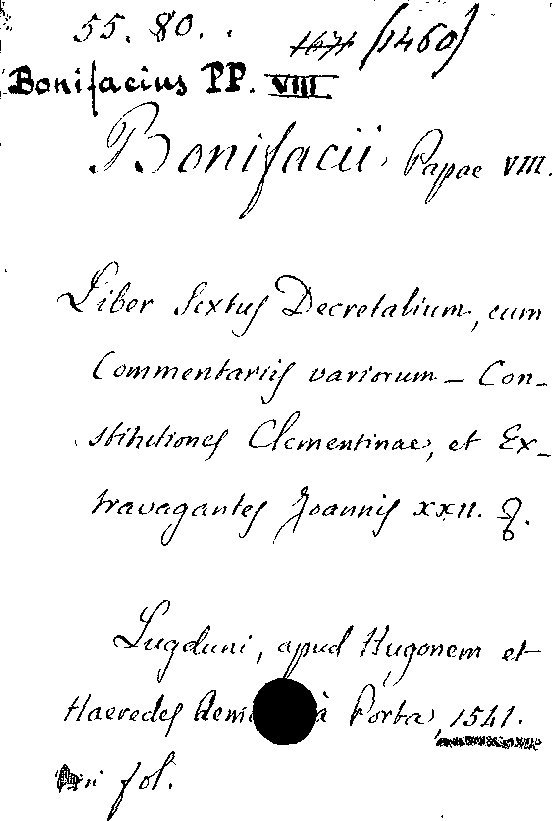 55. 80.
1671 (1460)
Bonifacius PP. VIII
Bonifacii, Papae VIII.
Liber Sextus Decretalium, cum
Commentariis variorum – Con-
stitutiones Clementinae, et Ex-
travagantes Joannis XXII.
Lugduni, apud Hugonem et
Haeredes à Porta, 1541.
in fol.